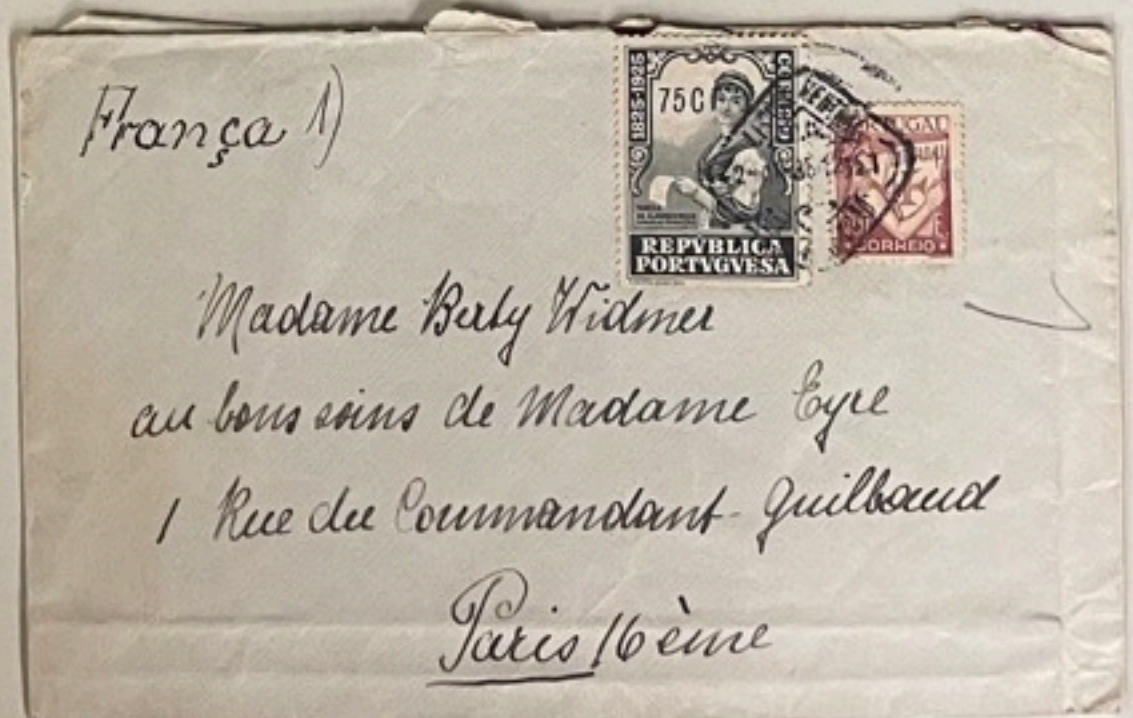 França 1)
1825-1925
CORREIO
75C
REPVBLICA
PORTVGVESA
PORTUGAL
CORREIO
Madame Berty Widmer
au bons soins de Madame Eyre
1 Rue du Commandant-Guilbaud
Paris 16ème